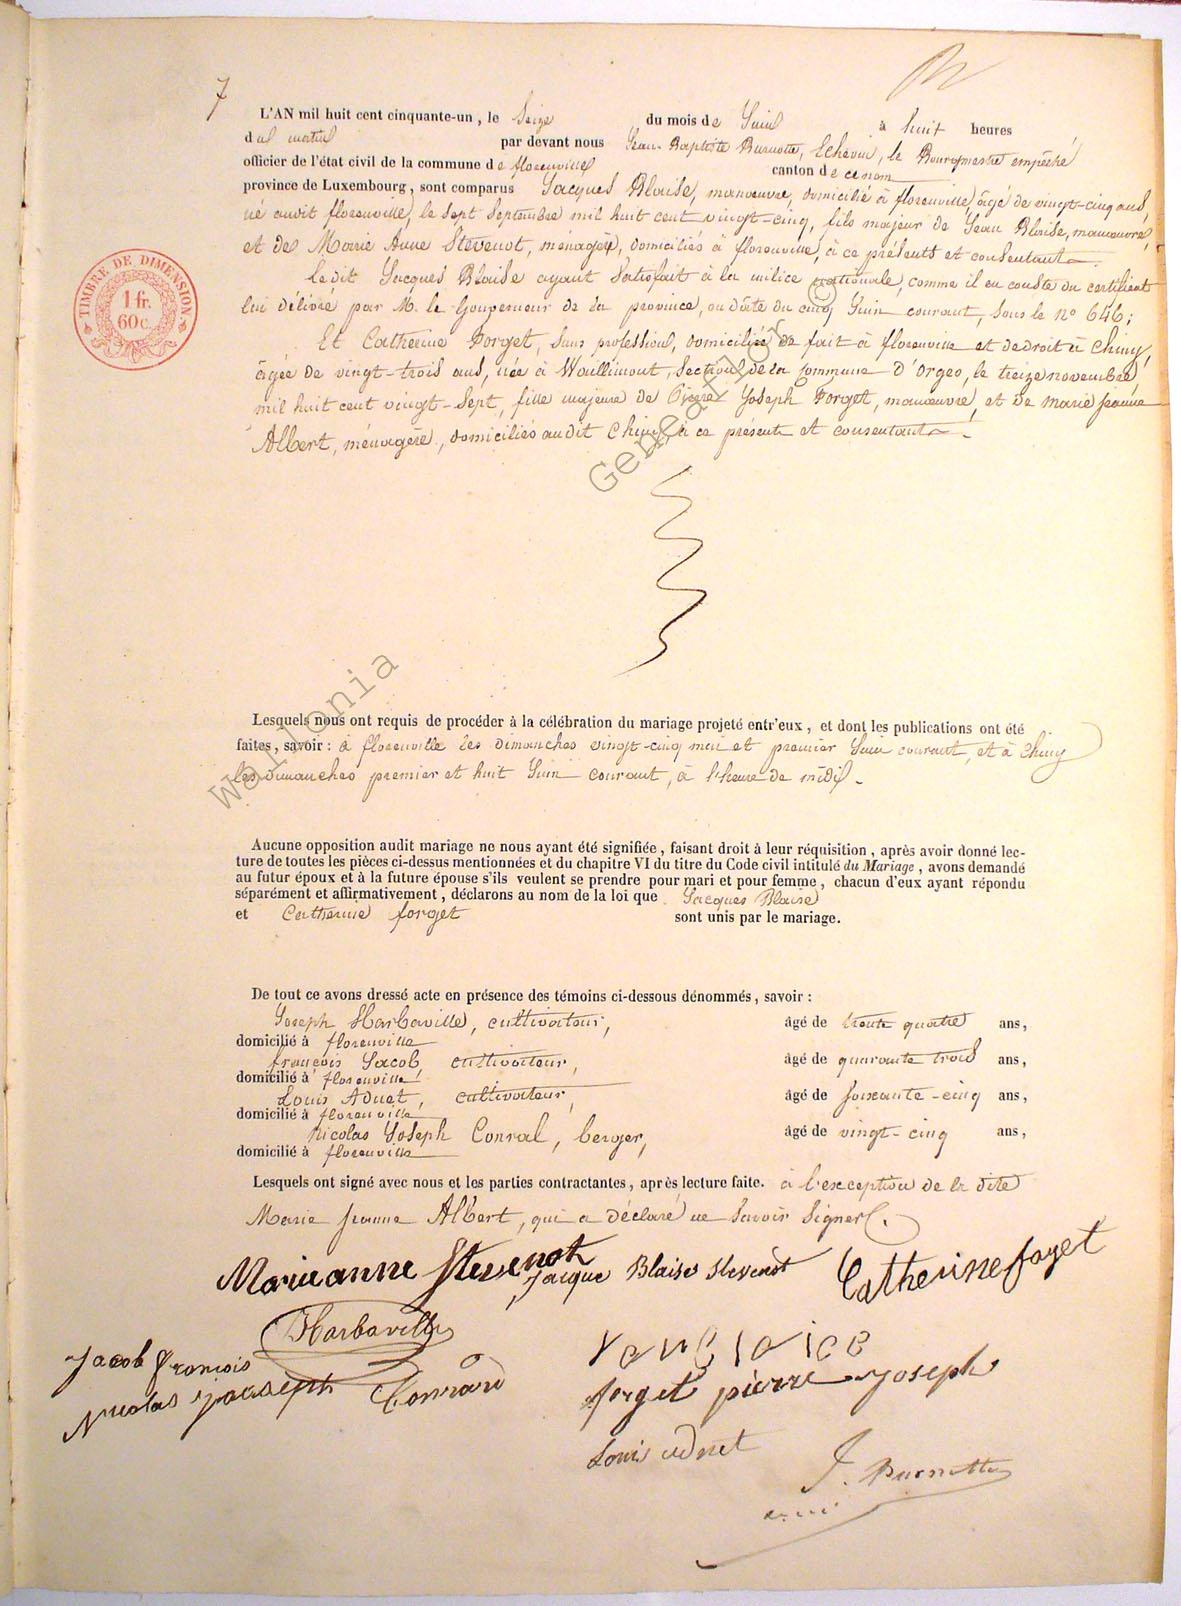 7
L'AN mil huit cent cinquante-un, le Seize du mois de Juin à huit heures
du matin par devant nous Jean-Baptiste Burnotte, Echevin, le Bourgmestre empêché
officier de l'état civil de la commune de florenville canton de ce nom
province de Luxembourg, sont comparus Jacques Blaise, manœuvre, domicilié à florenville, âgé de vingt-cinq ans,
né audit florenville, le sept Septembre mil huit cent vingt-cinq, fils majeur de Jean Blaise, manœuvre,
et de Marie Anne Stevenot, ménagère, domiciliés à florenville, à ce présents et consentants.
Le dit Jacques Blaise ayant satisfait à la milice nationale, comme il en conste du certificat
lui délivré par M. le Gouverneur de la province, en date du cinq Juin courant, sous le n° 646;
Et Catherine Forget, sans profession, domiciliée de fait à florenville et de droit à Chiny,
âgée de vingt-trois ans, née à Waillimont, section de la commune d'Orgeo, le treize novembre
mil huit cent vingt-sept, fille majeure de Pierre Joseph Forget, manœuvre, et de marie jeanne
Albert, ménagère, domiciliés audit Chiny, à ce présents et consentants.
TIMBRE DE DIMENSION
1 fr.
60 c.
Wallonia Genealogy ©
Lesquels nous ont requis de procéder à la célébration du mariage projeté entr'eux, et dont les publications ont été
faites, savoir : à florenville les dimanches vingt-cinq mai et premier Juin courant, et à Chiny
les dimanches premier et huit Juin courant, à l'heure de midi.
Aucune opposition audit mariage ne nous ayant été signifiée, faisant droit à leur réquisition, après avoir donné lec-
ture de toutes les pièces ci-dessus mentionnées et du chapitre VI du titre du Code civil intitulé du Mariage, avons demandé
au futur époux et à la future épouse s'ils veulent se prendre pour mari et pour femme, chacun d'eux ayant répondu
séparément et affirmativement, déclarons au nom de la loi que Jacques Blaise
et Catherine forget sont unis par le mariage.
De tout ce avons dressé acte en présence des témoins ci-dessous dénommés, savoir :
Joseph Harbaville, cultivateur, âgé de trente quatre ans,
domicilié à florenville
françois Jacob, cultivateur, âgé de quarante trois ans,
domicilié à florenville
Louis Adnet, cultivateur, âgé de soixante-cinq ans,
domicilié à florenville
Nicolas Joseph Conral, berger, âgé de vingt-cinq ans,
domicilié à florenville
Lesquels ont signé avec nous et les parties contractantes, après lecture faite. à l'exception de la dite
Marie Jeanne Albert, qui a déclaré ne savoir signer.
Marieanne Stevenot
Jacque Blaise Stevenot
Catherine foyet
Harbaville
Jacob françois
forget pierre joseph
Nicolas joaseph Conrard
Louis adnet
J. Burnotte